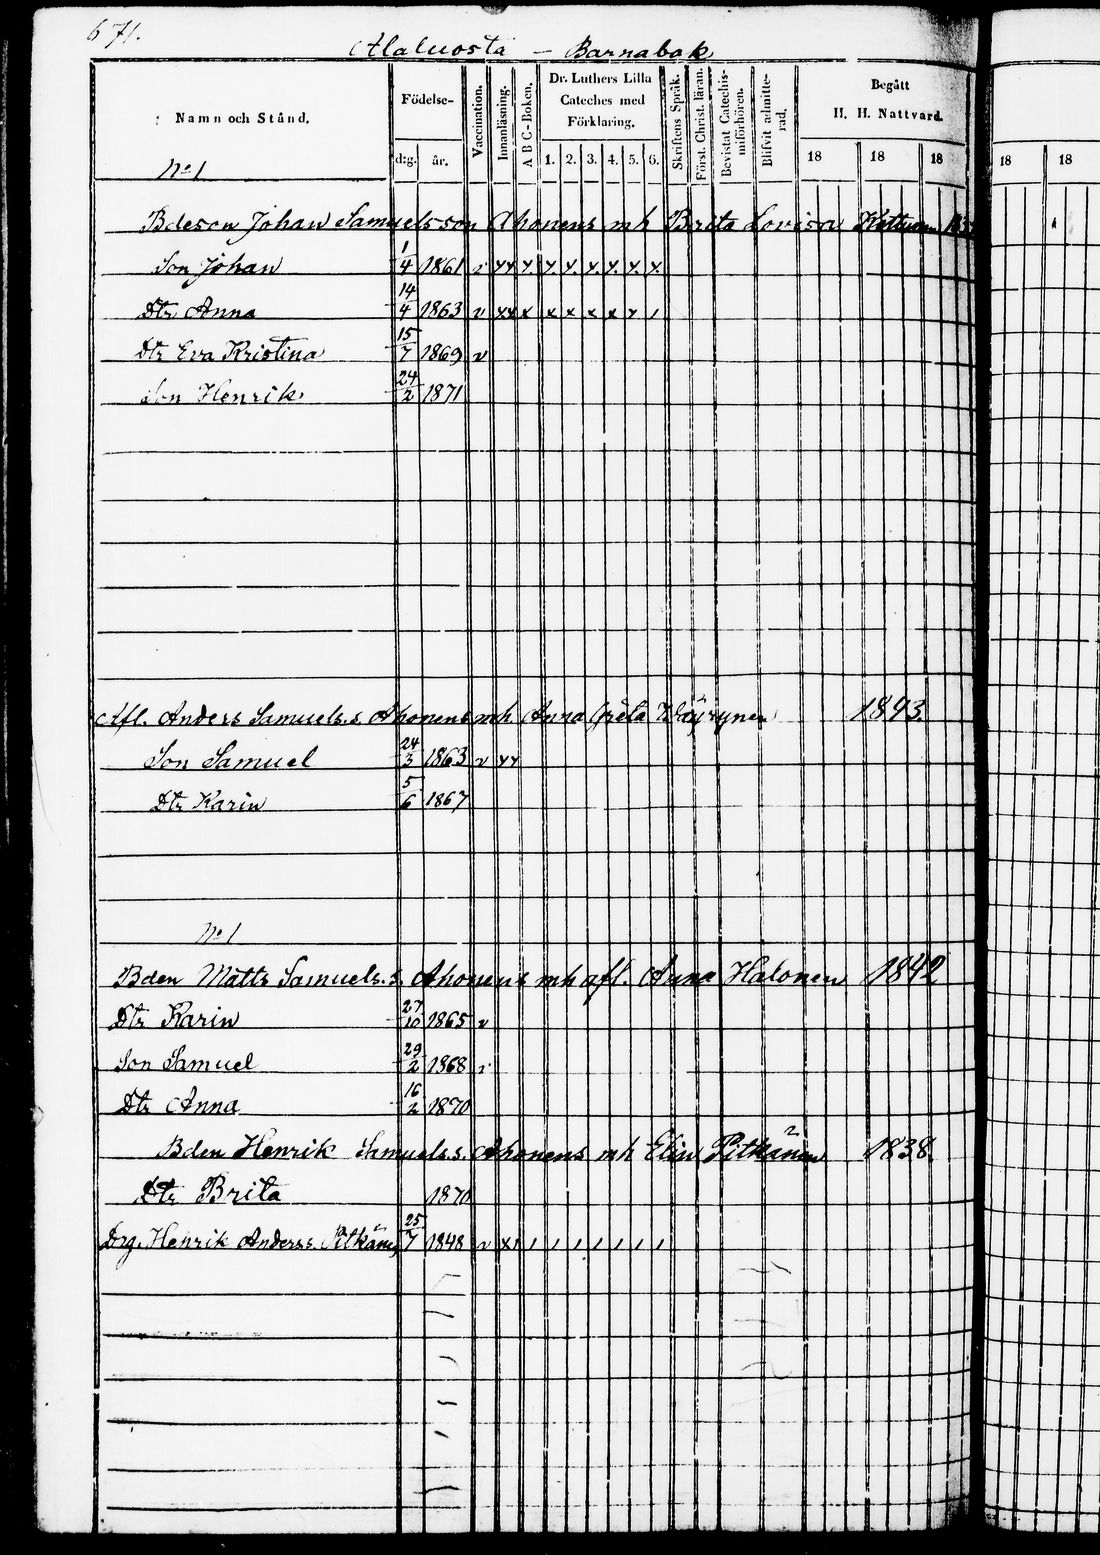 671.
Alaluosta – Barnabok
Namn och Stånd.
Födelse-
Vaccination.
Innanläsning.
A B C-Boken.
Dr. Luthers Lilla
Cateches med
Förklaring.
Skriftens Språk.
Först. Christ. läran.
Bevistat Catechis-
miförhören.
Blifvit admitte-
rad.
Begått
H. H. Nattvard.
dag. år. 1. 2. 3. 4. 5. 6. 18 18 18 18 18
No 1
Bdeson Johan Samuelsson Ahonens mh Brita Lovisa
Son Johan 1/4 1861 v xx x x x x x x x
Dtr Anna 14/4 1863 v xx x x x x x x /
Dtr Eva Kristina 15/7 1869 v
Son Henrik 24/2 1871
Afl. Anders Samuels.s. Ahonens mh. Anna Greta Wäyrynen 1893
Son Samuel 24/3 1863 v xx
Dtr Karin 5/6 1867
No 1
Bden Matts Samuels.s. Ahonens mh afl. Anna Halonen 1842
Dtr Karin 27/10 1865 v
Son Samuel 29/2 1868 v
Dtr Anna 16/2 1870
Bden Henrik Samuels.s. Ahonens mh Elin Pitkänen 1838.
Dtr Brita 1870
Drg. Henrik Anderss. Pitkänen 25/7 1848 v x/ / / / / / / /